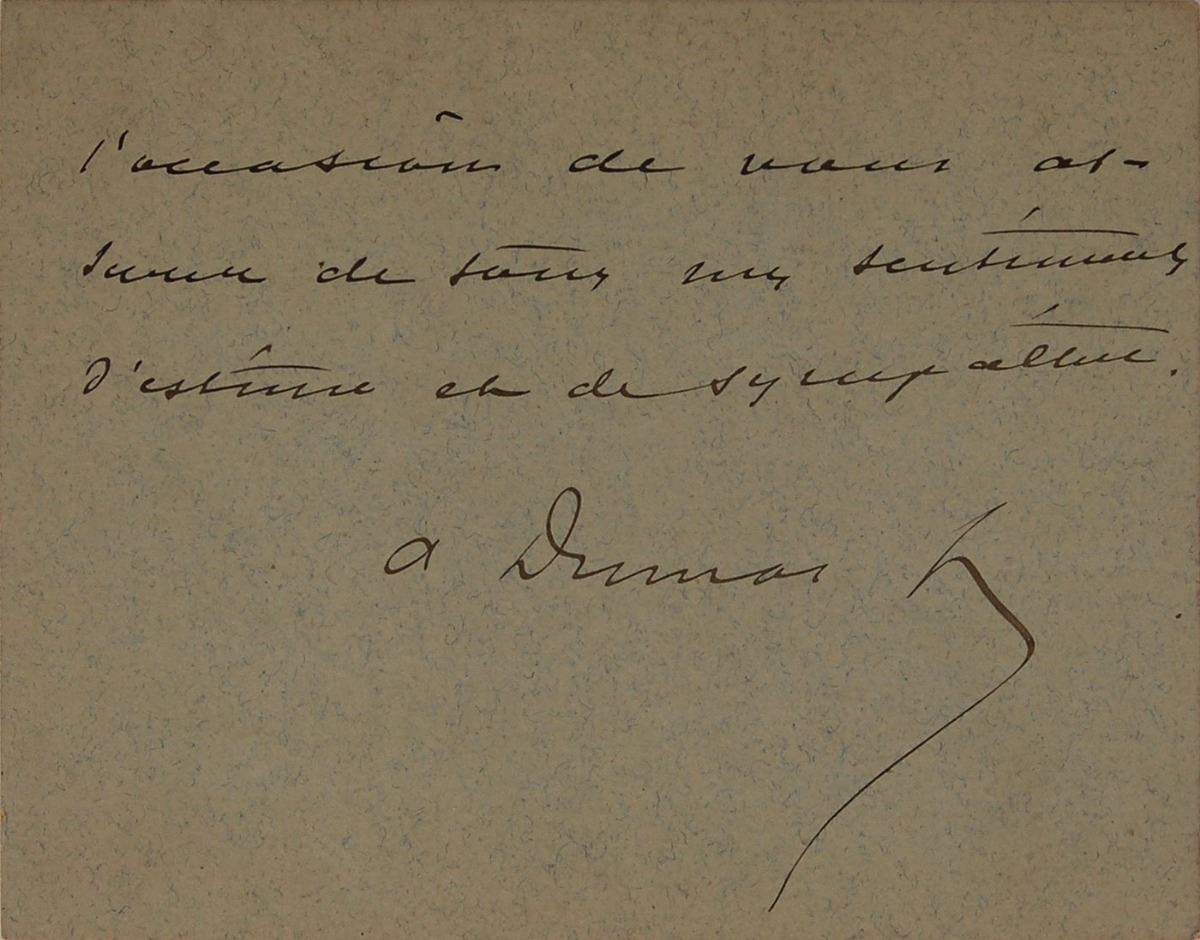 l'occasion de vous as-
surer de tous mes sentiments
d'estime et de sympathie.
A Dumas f